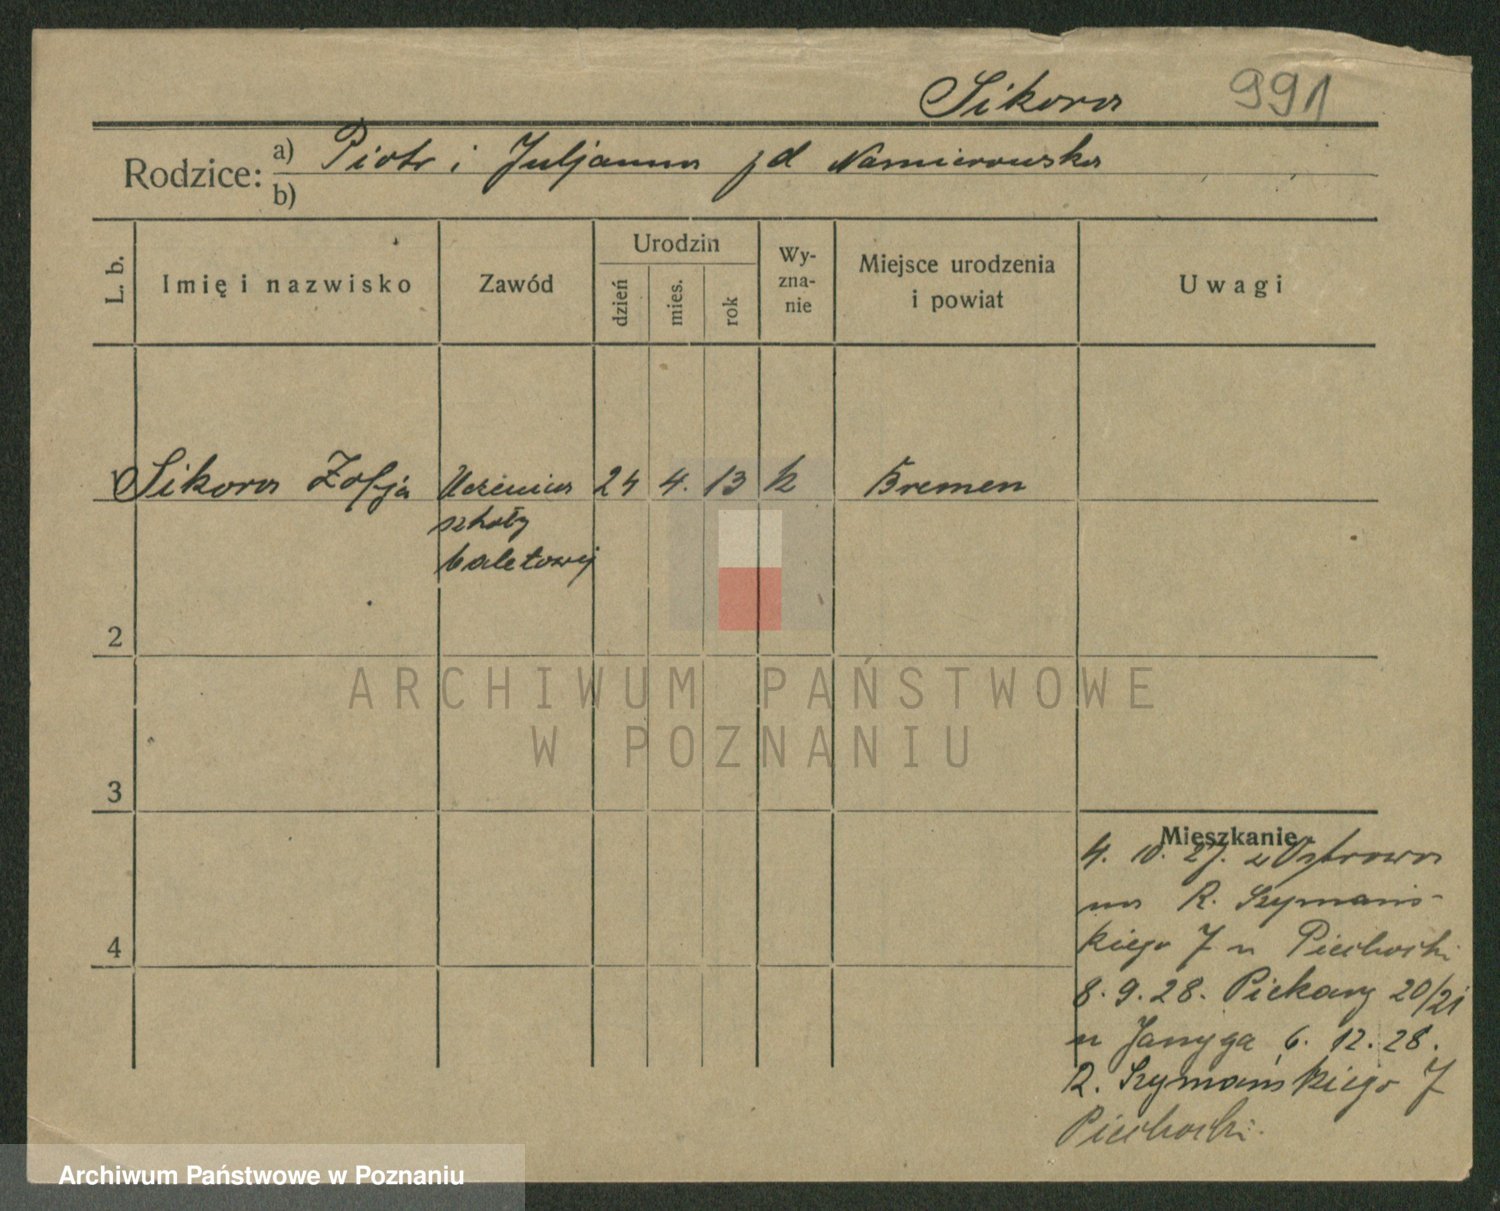 Sikora 991
Rodzice: a) Piotr i Juljanna zd Namierowska
b)
L. b. Imię i nazwisko Zawód Urodzin dzień mies. rok Wy-zna-nie Miejsce urodzenia i powiat Uwagi
1 Sikora Zofja Uczenica 24 4. 13 k Bremen
szkoły
baletowej
2
ARCHIWUM PAŃSTWOWE
W POZNANIU
3
Mieszkanie
4. 10. 27. z Ostrowa
na R. Szymańs-
kiego 7 u Piechocki
4
8. 9. 28. Piekary 20/21
u 6. 12. 28.
R. Szymańskiego 7
Piechocki.
Archiwum Państwowe w Poznaniu